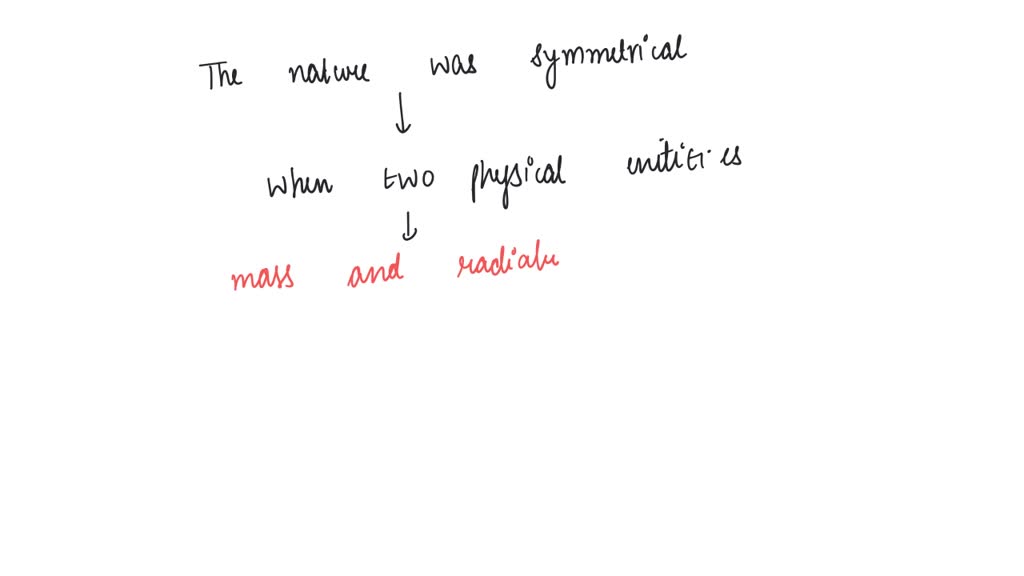 The nature was symmetrical
when two physical entities
mass and